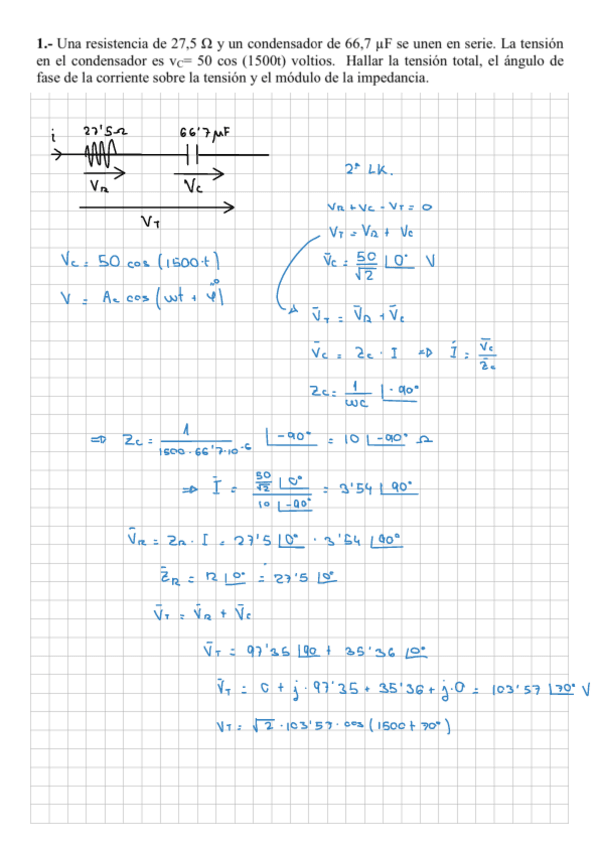 1.- Una resistencia de 27,5 Ω y un condensador de 66,7 µF se unen en serie. La tensión
en el condensador es vC= 50 cos (1500t) voltios. Hallar la tensión total, el ángulo de
fase de la corriente sobre la tensión y el módulo de la impedancia.
i 27'5Ω 66'7µF
VR VC
VT
2ª LK.
VR + VC - VT = 0
VT = VR + VC
VC = 50 cos (1500t)
V̄C = 50/√2 |0° V
V = AC cos (ωt + φ) 0
V̄T = V̄R + V̄C
V̄C = ZC · I ⇒ Ī = V̄C/ZC
ZC = 1/ωC |-90°
⇒ ZC = 1/(1500·66'7·10^-6) |-90° = 10 |-90° Ω
⇒ Ī = (50/√2 |0°)/(10 |-90°) = 3'54 |90°
V̄R = ZR · I = 27'5 |0° · 3'54 |90°
Z̄R = R |0° = 27'5 |0°
V̄T = V̄R + V̄C
V̄T = 97'35 |90 + 35'36 |0°
V̄T = 0 + j·97'35 + 35'36 + j·0 = 103'57 |70° V
VT = √2 · 103'57 · cos (1500t 70°)